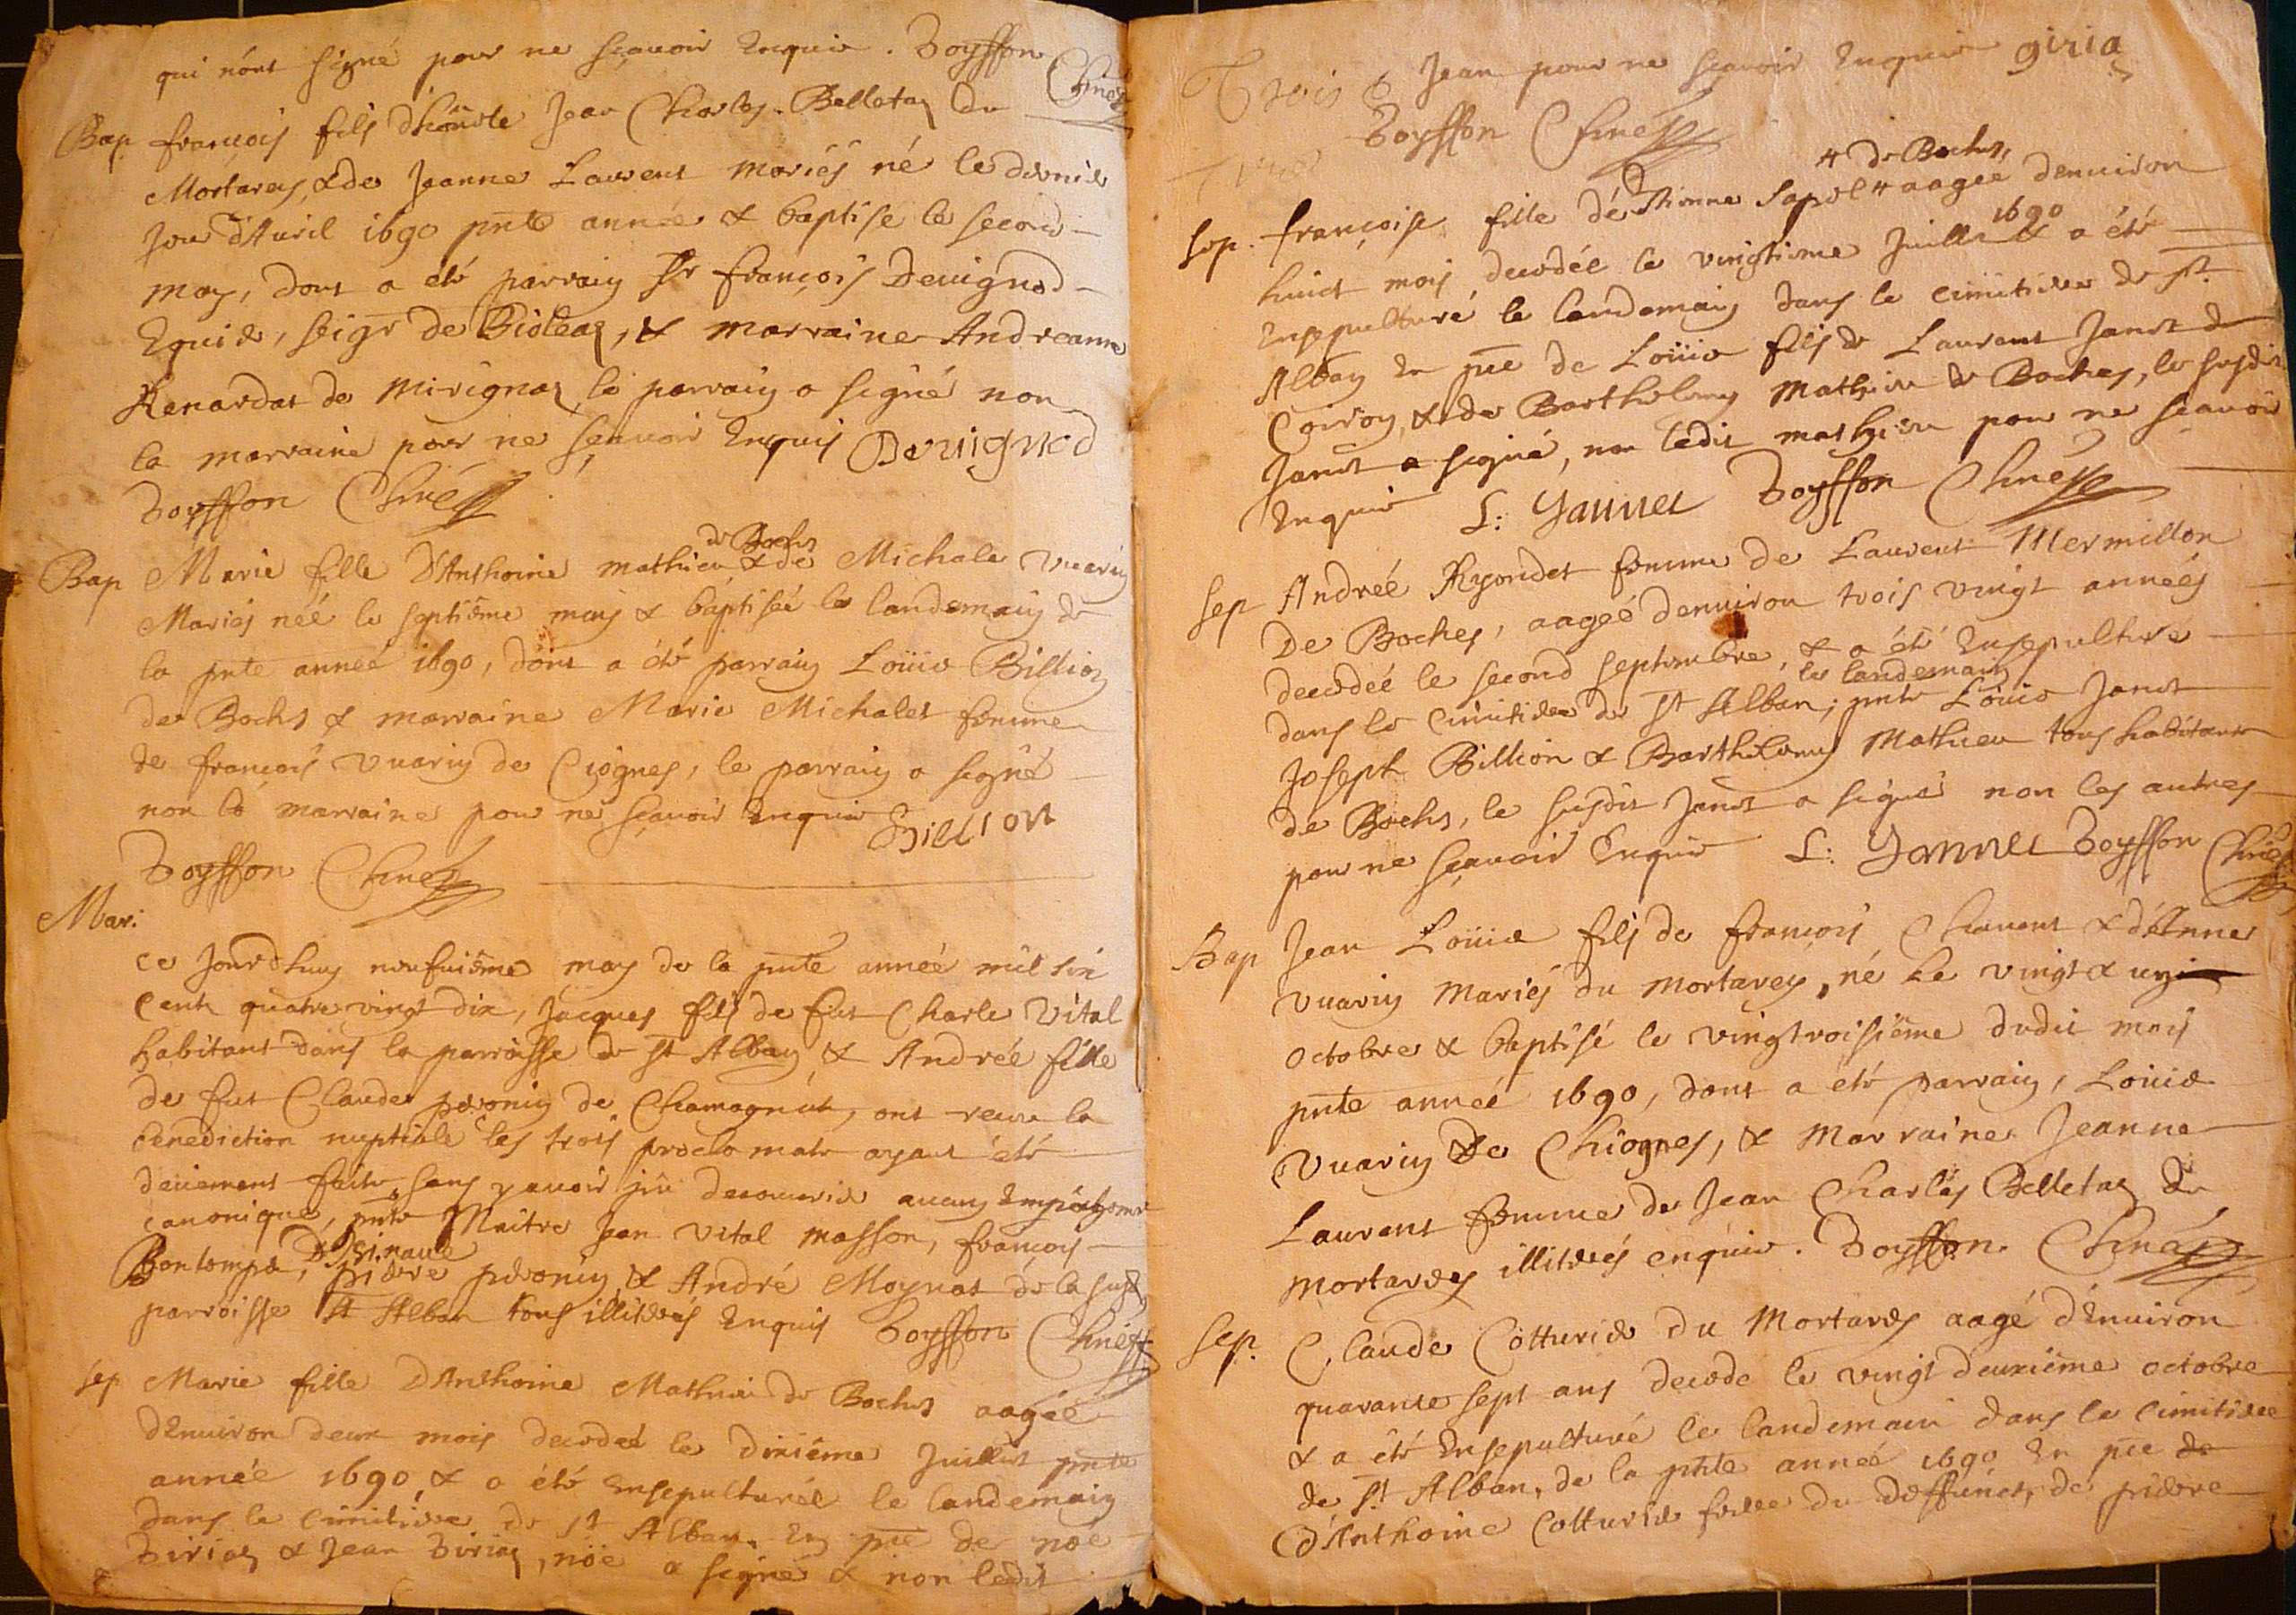 qui nónt signé pour ne sçauoir Enquis. Boysson Chnes
Bap. françois fils dhoñeste Jean Charles Belletaz du
Mortarey, & de Jeanne Laurent mariés né le dernier
Jour d'Auril 1690 pnte année & baptisé le second
may, dont a été parrain Sr françois Deuignod
Equier, seigr de Bioleaz, & marraine Andreanne
Renardat de Mirignaz, le parrain a signé non
la marraine pour ne sçauoir Enquis Deuignod
Boysson Chnés
de Boches
Bap Marie fille D'Anthoine mathieu, & de Michale Vuarin
Mariés néé le septiéme may & baptiséé le landemain de
la pnte annéé 1690, dont a été parrain Loüis Billion
de Boches & marraine Marie Michalet femme
de françois Vuarin de Ciognes, le parrain a signé
non la marraine pour ne sçauoir Enquis Billion
Boysson Chnes
Mar:
ce Jourdhuy neufuiéme may de la pnte année mil six
cent quatre vingt dix, Jacques fils de fut Charle Vital
habitant dans la parroisse de St Alban & Andrée fille
de fut Claude peronin de Chamagnat, ont receu la
benediction nuptiale les trois proclomats ayant été
deüement faits sans y auoir pû decouurir aucun Empéchement
canonique, pnts Maitre Jean Vital masson, françois
Bontemps, pierre peronin, & André Moynat de la susd
parroisse St Alban tous illiterés Enquis Boysson Chnés
Sep Marie fille D'Anthoine Mathieu de Boches aagéé
d'Enuiron deux mois decedéé le dixiéme Juillet pnte
année 1690, & a été Ensepulturéé le landemain
dans le cimitiere de St Alban. En pnce de noé
Girias & Jean Girias, noë a signé & non ledit
Jean pour ne sçauoir Enquis giria
Boysson Chnés
# de Boches,
Sep. françoise fille d'éstienne Sapol # aageé denuiron
1690
huict mois, decedéé le vingtieme Juillet & a été
Ensepulturé le landemain dans le cimitiere de St
Alban En pnce de Loüis fils de Laurent Janet de
Coiron, & de Barthelemy Mathieu de Boches, le susdit
Janet a signé, non ledit mathieu pour ne sçauoir
Enquis L: Jannet Boysson Chnés
Sep Andréé Ryondet femme de Laurent Mermillon
De Boches, aagéé denuiron trois vingt annéés
decedéé le second septembre, & a été Ensepulturé
le landemain
dans le cimitiere de St Alban, pnts Loüis Janet
Joseph Billion & Barthelemy Mathieu tous habitants
de Boches, le susdit Janet a signé non les autres
pour ne sçauoir Enquis L: Jannet Boysson Chnés
Bap Jean Loüis fils de françois Chauent & d'Anne
Vuarin Mariés du Mortarey, né Le vingt & un
octobre & baptisé le vingtroisiéme dudit mois
pnte année 1690, dont a été parrain, Loüis
Vuarin De Chiognes, & Marraine Jeanne
Laurent femme de Jean Charles Belletaz de
mortarey illiterés enquis. Boysson Chnés
Sep. Claude Cotturier du Mortarey aagé d'Enuiron
quarante sept ans decede le vingt deuxiéme octobre
& a été Ensepulturé le landemain dans le cimitiere
de St Alban, de la pnte année 1690 En pnce de
d'Anthoine Cotturier frere du deffunct, de pierre